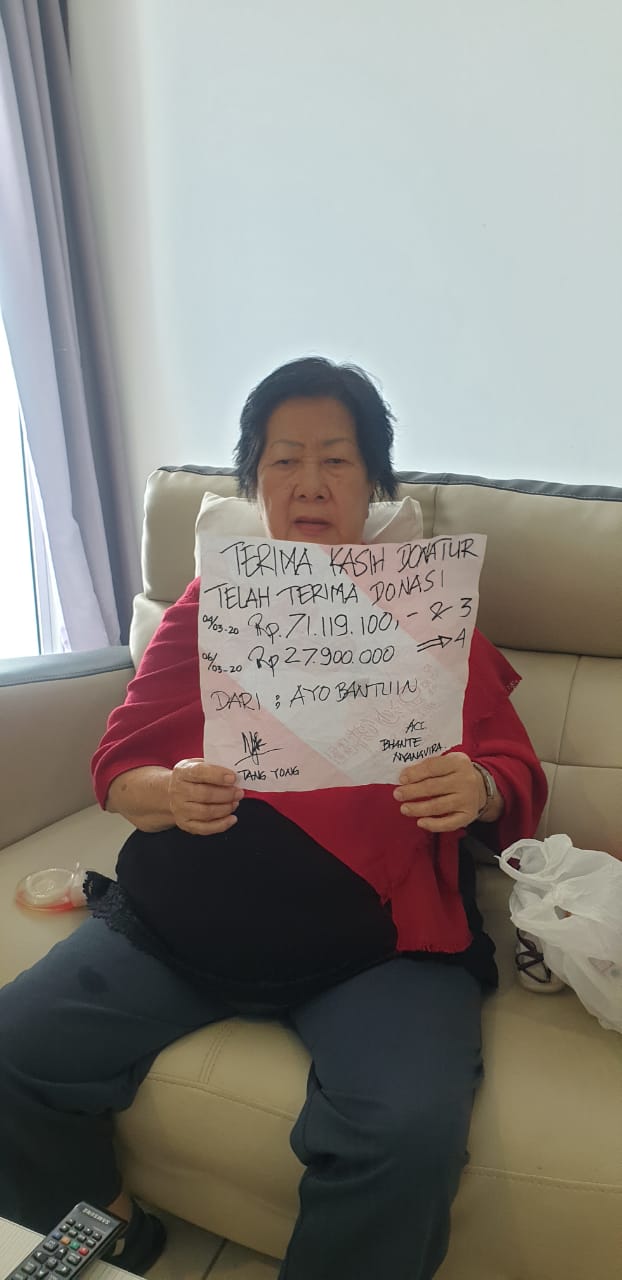 TERIMA KASIH DONATUR
TELAH TERIMA DONASI
04/03-20 Rp. 71.119.100,- & 3
06/03-20 Rp 27.900.000 ⇒ 4
DARI : AYO BANTUIN
ACC
BHANTE
NYANAVIRA
TANG YONG
SAMSUNG